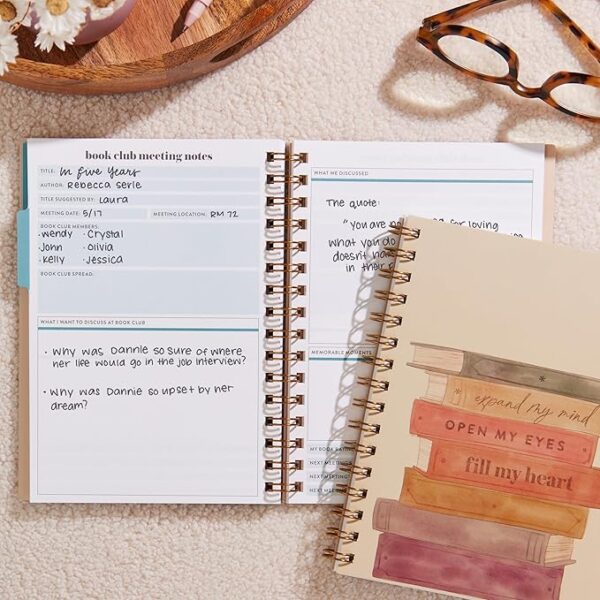 book club meeting notes
TITLE: In Five Years
AUTHOR: Rebecca Serle
TITLE SUGGESTED BY: Laura
MEETING DATE: 5/17 MEETING LOCATION: RM 72
BOOK CLUB MEMBERS:
• Wendy • Crystal
• John • Olivia
• Kelly • Jessica
BOOK CLUB SPREAD:
WHAT I WANT TO DISCUSS AT BOOK CLUB
• Why was Dannie so sure of where
her life would go in the job interview?
• Why was Dannie so upset by her
dream?
WHAT WE DISCUSSED
The quote:
"You are for loving
what you do
doesn't
in their
MEMORABLE MOMENTS
MY BOOK RATING
NEXT MEETING
NEXT MEETING
NEXT MEETING
expand my mind
OPEN MY EYES
fill my heart